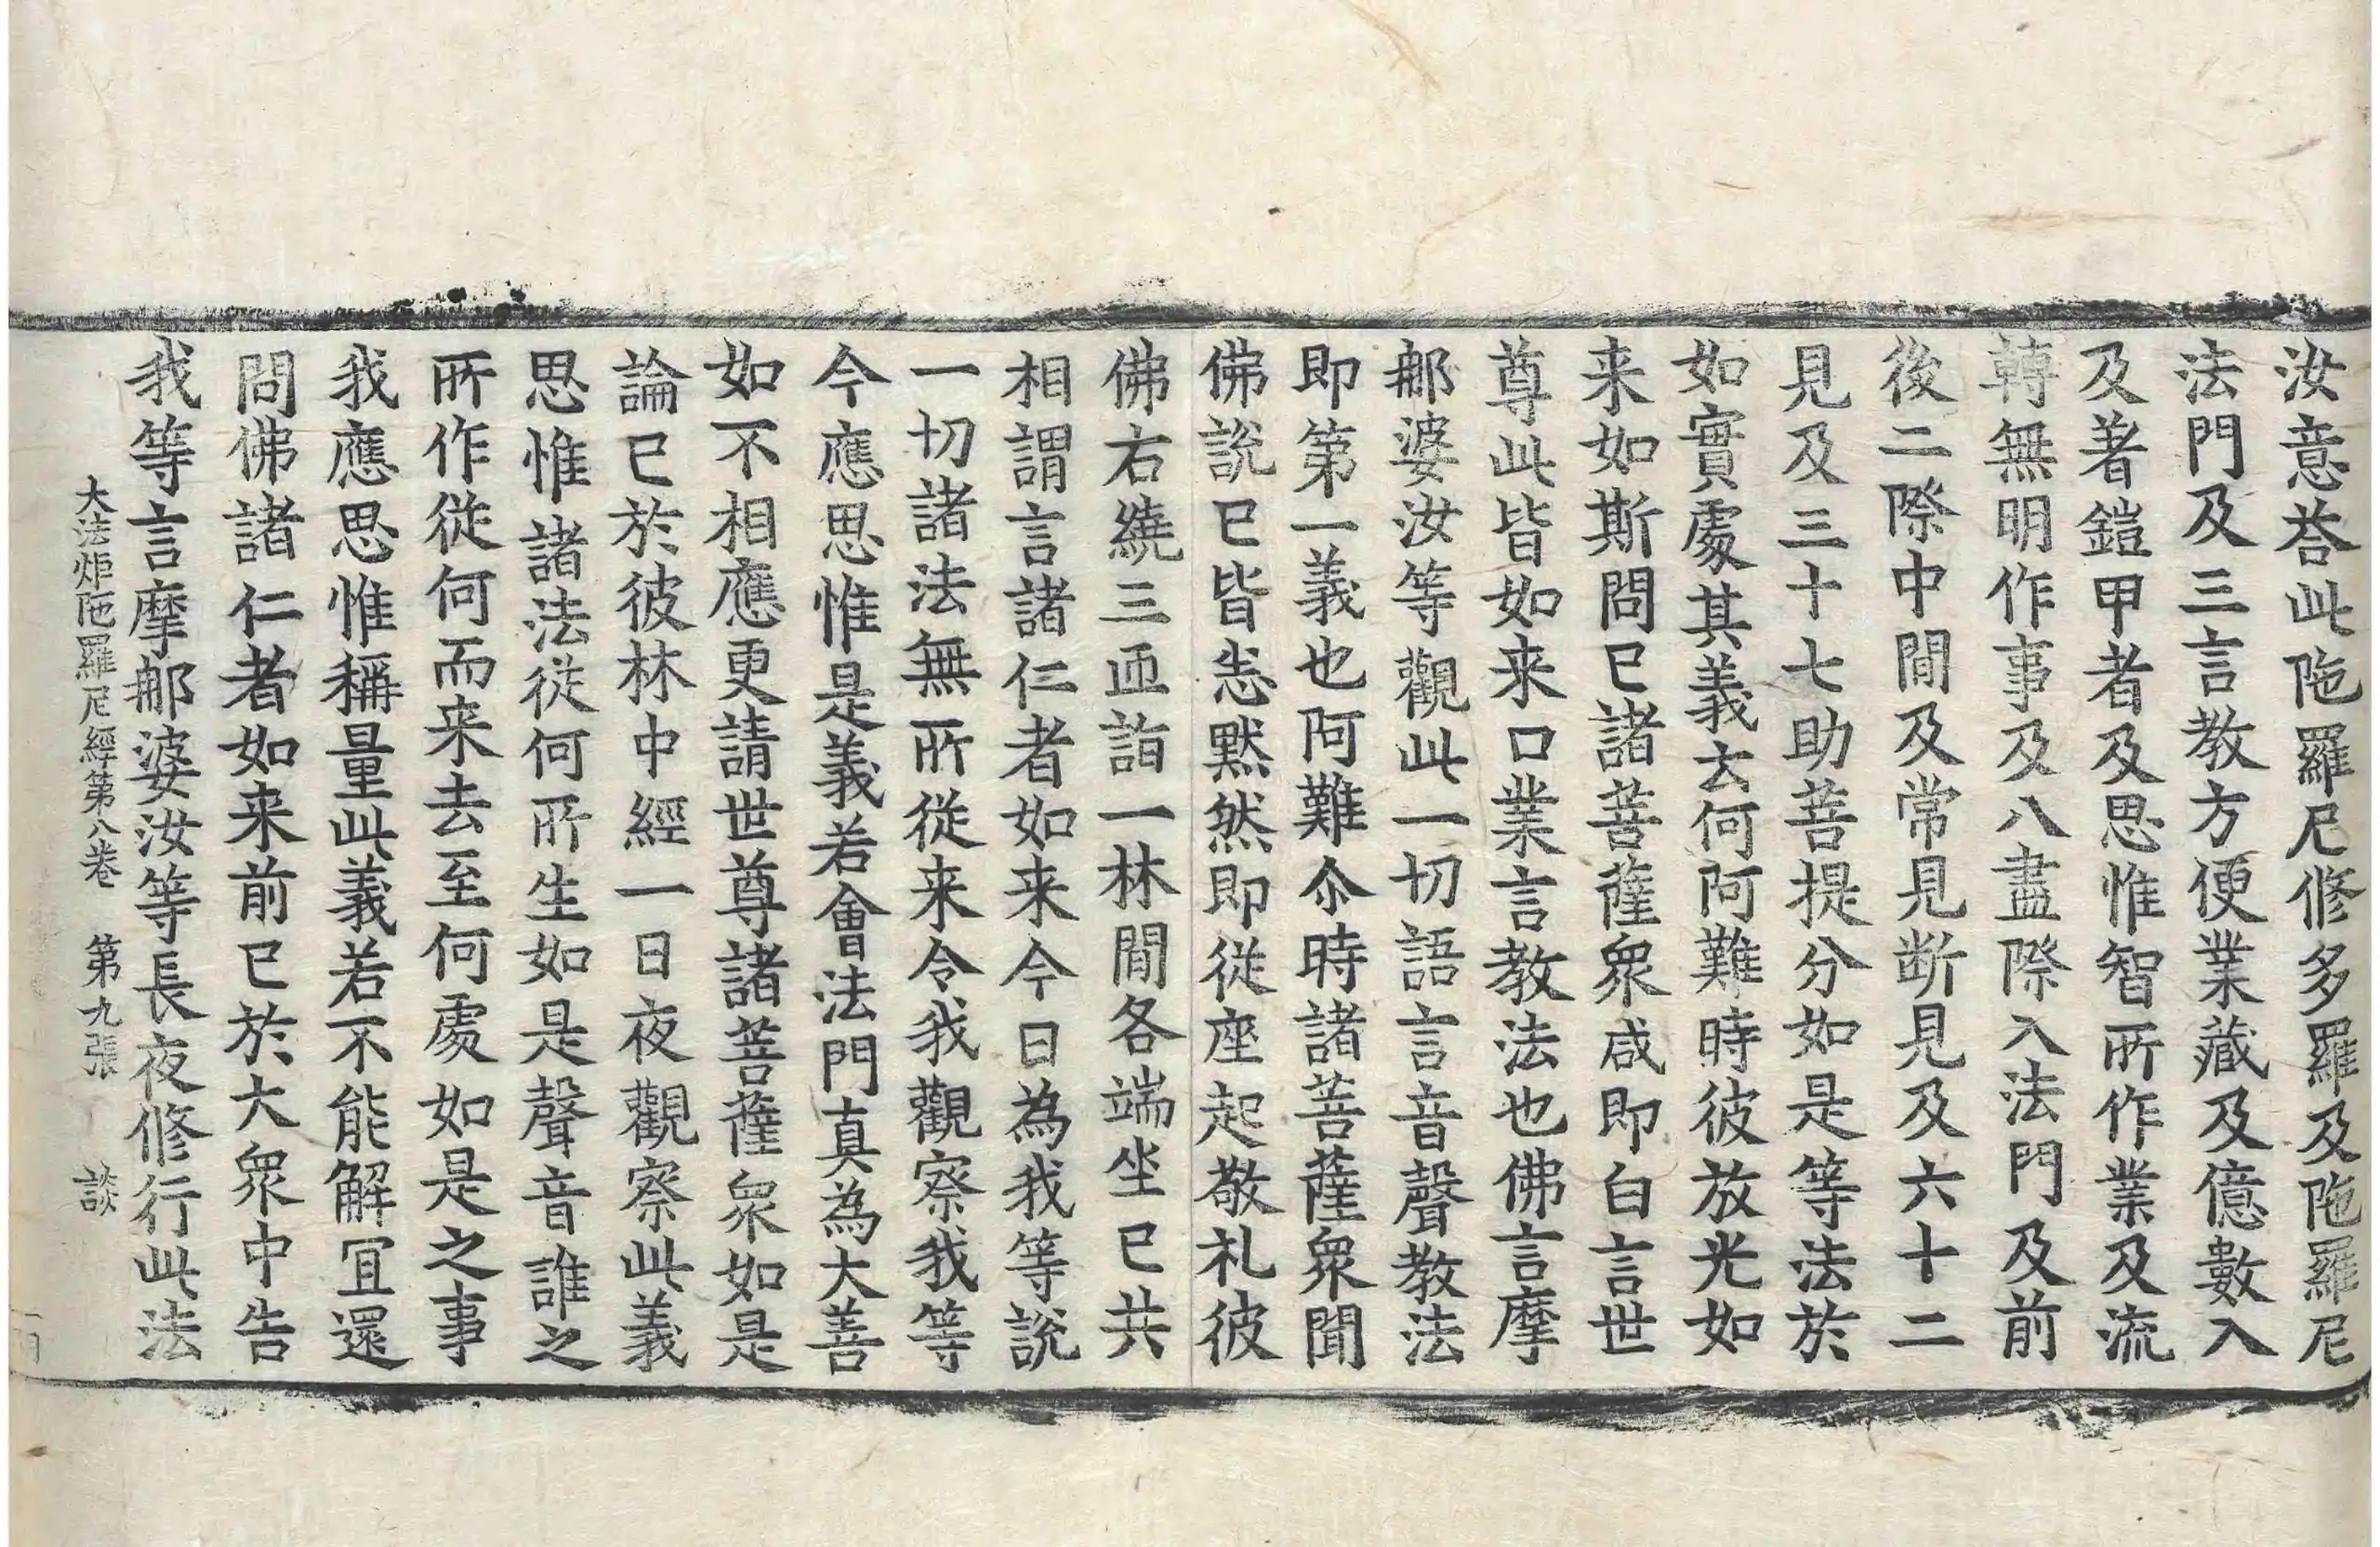 汝意荅此陁羅尼修多羅及陁羅尼
法門及三言教方便業藏及億數入
及著鎧甲者及思惟智所作業及流
轉無明作事及八盡際入法門及前
後二際中間及常見断見及六十二
見及三十七助菩提分如是等法於
如實處其義云何阿難時彼放光如
来如斯問已諸菩薩衆咸即白言世
尊此皆如来口業言教法也佛言摩
那婆汝等觀此一切語言音聲教法
即第一義也阿難尒時諸菩薩衆聞
佛說已皆悉默然即從座起敬礼彼
佛右繞三帀詣一林間各端坐已共
相謂言諸仁者如来今日為我等說
一切諸法無所從来令我觀察我等
今應思惟是義若會法門真為大善
如不相應更請世尊諸菩薩衆如是
論已於彼林中經一日夜觀察此義
思惟諸法從何所生如是聲音誰之
所作從何而来去至何處如是之事
我應思惟稱量此義若不能解冝還
問佛諸仁者如来前已於大衆中告
我等言摩那婆汝等長夜修行此法
大法炬陁羅尼經第八卷 第九張 談